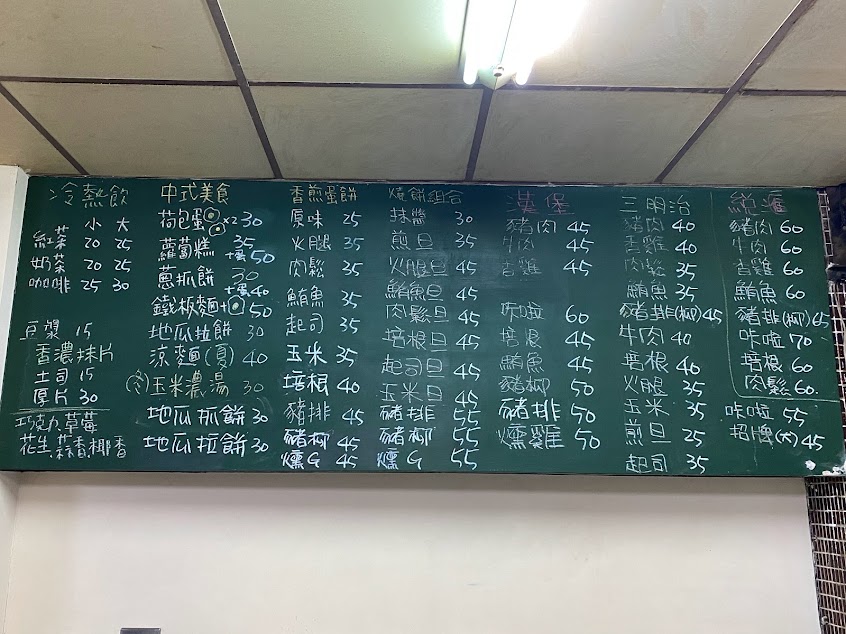 冷熱飲
小 大
紅茶 20 25
奶茶 20 25
咖啡 25 30
豆漿 15
香濃抹片
土司 15
厚片 30
巧克力.草莓
花生.蒜香.椰香
中式美食
荷包蛋 x2 30
蘿蔔糕 35
+蛋 50
蔥抓餅 30
+蛋 40
鐵板麵+ 50
地瓜拉餅 30
涼麵(夏) 40
(冬)玉米濃湯 30
地瓜抓餅 30
地瓜拉餅 30
香煎蛋餅
原味 25
火腿 35
肉鬆 35
鮪魚 35
起司 35
玉米 35
培根 40
豬排 45
豬柳 45
燻G 45
燒餅組合
抹醬 30
煎旦 35
火腿旦 45
鮪魚旦 45
肉鬆旦 45
培根旦 45
起司旦 45
玉米旦 45
豬排 55
豬柳 55
燻G 55
漢堡
豬肉 45
牛肉 45
香雞 45
咔啦 60
培根 45
鮪魚 45
豬柳 50
豬排 50
燻雞 50
三明治
豬肉 40
香雞 40
肉鬆 35
鮪魚 35
豬排(柳) 45
牛肉 40
培根 40
火腿 35
玉米 35
煎旦 25
起司 35
豬肉 60
牛肉 60
香雞 60
鮪魚 60
豬排(柳) 65
咔啦 70
培根 60
肉鬆 60.
咔啦 55
招牌(大) 45